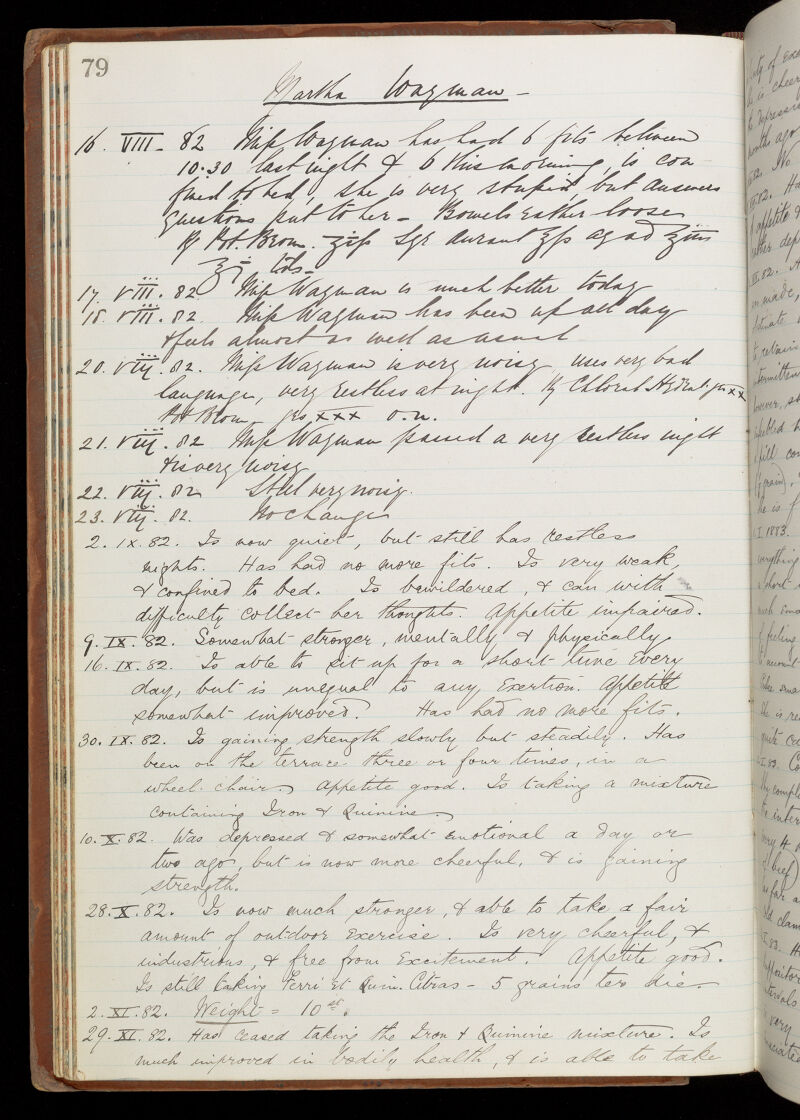 79
Martha Wagman -
16. VIII - 82 Miss Wagman has had 6 fits between
10.30 last night & 6 this morning, is con
fined to bed, she is very stupid but answers
questions put to her - Bowels rather loose
Pot. Brom.
17. VIII. 82 Miss Wagman is much better today
18. VIII. 82. Miss Wagman has been up all day
& feels almost as well as usual
20. VIII. 82. Miss Wagman is very noisy, uses very bad
language, very restless at night. ℞ Chloral Hydrat. grs xx
Pot Brom grs xxx o.n.
21. VIII. 82 Miss Wagman passed a very restless night
& is very noisy
22. VIII. 82 Still very noisy.
23. VIII. 82. No change
2. IX. 82. Is now quiet, but still has restless
nights. Has had no more fits. Is very weak,
& confined to bed. Is bewildered, & can with
difficulty collect her thoughts. Appetite impaired.
9. IX. 82. Somewhat stronger, mentally & physically.
16. IX. 82. Is able to sit up for a short time every
day, but is unequal to any exertion. Appetite
somewhat improved. Has had no more fits.
30. IX. 82. Is gaining strength slowly but steadily. Has
been on the terrace three or four times, in a
wheel-chair. Appetite good. Is taking a mixture
containing Iron & Quinine.
10. X. 82. Was depressed & somewhat emotional a day or
two ago, but is now more cheerful, & is gaining
strength.
28. X. 82. Is now much stronger, & able to take a fair
amount of outdoor exercise. Is very cheerful, &
industrious, & free from excitement. Appetite good.
Is still taking Ferri et Quin. Citras - 5 grains ter die
2. XI. 82. Weight = 10 st.
29. XI. 82. Has ceased taking the Iron & Quinine mixture. Is
much improved in bodily health, & is able to take